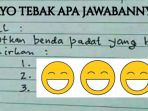 YO TEBAK APA JAWABANNY
al :
utkan benda padat yang b
irkan :
1.
2.
3.